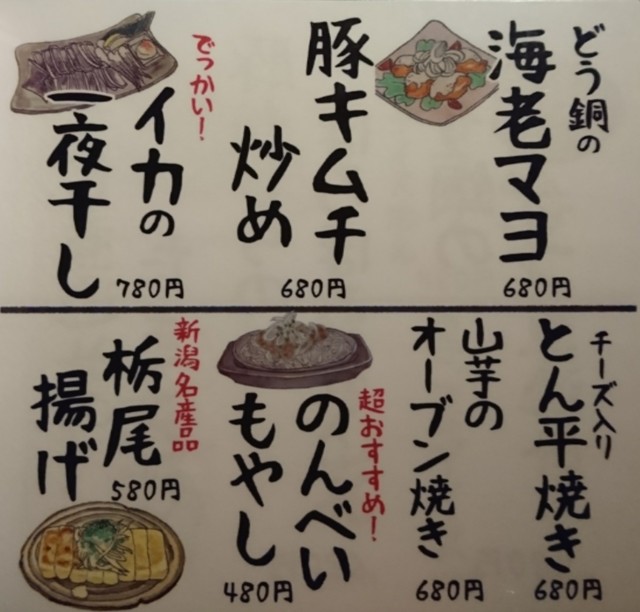 どう銅の
海老マヨ
680円
豚キムチ
炒め
680円
でっかい！
イカの
一夜干し
780円
チーズ入り
とん平焼き
680円
山芋の
オーブン焼き
680円
超おすすめ！
のんべい
もやし
480円
新潟名産品
栃尾
揚げ
580円